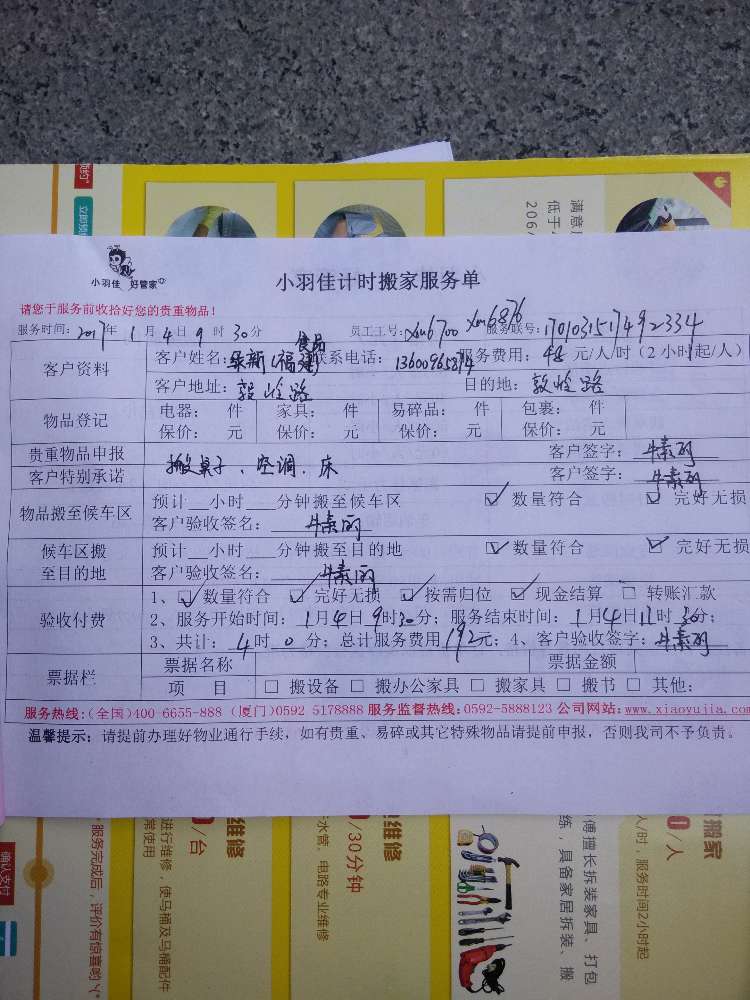 满意
低于
206/
小羽佳 好管家
小羽佳计时搬家服务单
请您于服务前收拾好您的贵重物品！
服务时间：2017年 1月4日9时30分 员工工号：xm6700 xm6876 服务联号：170103151749 2334
客户资料 客户姓名： 新（福建）食品 联系电话：13600965814 服务费用：48元/人/时（2小时起/人）
客户地址：敦 路 目的地：敦 路
物品登记 电器： 件 家具： 件 易碎品： 件 包裹： 件
保价： 元 保价： 元 保价： 元 保价： 元
贵重物品申报 客户签字：
客户特别承诺 搬桌子、空调、床 客户签字：
物品搬至候车区 预计__小时___分钟搬至候车区 ☑ 数量符合 ☑ 完好无损
客户验收签名：
候车区搬至目的地 预计__小时___分钟搬至目的地 ☑ 数量符合 ☑ 完好无损
客户验收签名：
验收付费 1、☑ 数量符合 ☑ 完好无损 ☑ 按需归位 ☑ 现金结算 □ 转账汇款
2、服务开始时间：1月4日9时30分；服务结束时间：1月4日11时30分；
3、共计：4时0分；总计服务费用192元；4、客户验收签字：
票据栏 票据名称 票据金额
项 目 □ 搬设备 □ 搬办公家具 □ 搬家具 □ 搬书 □ 其他：
服务热线：（全国）400-6655-888（厦门）0592 5178888 服务监督热线：0592-5888123 公司网站：www.xiaoyujia.com
温馨提示：请提前办理好物业通行手续，如有贵重、易碎或其它特殊物品请提前申报，否则我司不予负责。
搬家
0/人
人/时，服务时间2小时起
傅擅长拆装家具、打包
练，具备家居拆装、搬
维修
0/30分钟
水管、电路专业维修
维修
0/台
进行维修，使马桶及马桶配件
常使用
确认支付
"服务完成后，评价有惊喜哟~"